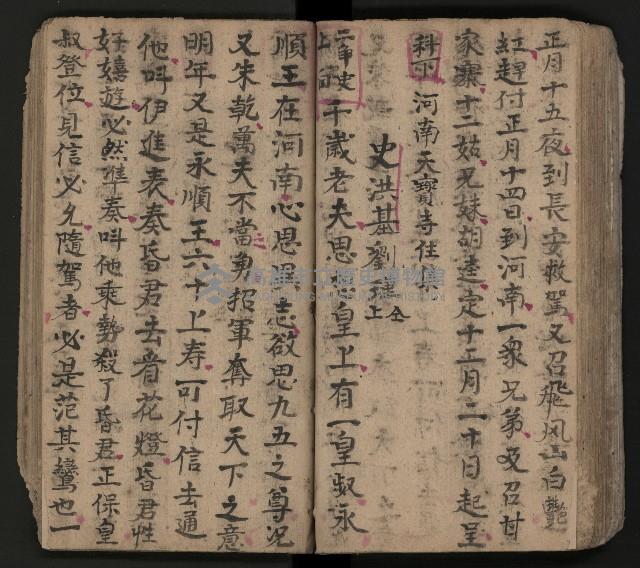 正月十五夜到長安救駕又召飛风山白艷
紅趕付正月十四日到河南一衆兄弟及召甘
家寨十二姑兄妹胡達定十二月二十日起呈
科爪 河南天寶寺住下
史洪基 劉璜 上 仝
二軍史上
千歲老夫思 皇上有一皇叔永
順王在河南心思 志欲思九五之尊况
又朱乾萬夫不當勇招軍奪取天下之意
明年又是永順王六十上寿可付信去通
他呌伊進表奏昏君去看花燈昏君性
好嬉遊必然準奏呌他乘勢殺了昏君正保皇
叔登位見信必允隨駕者必是范其鸞也一
高雄市立歷史博物館